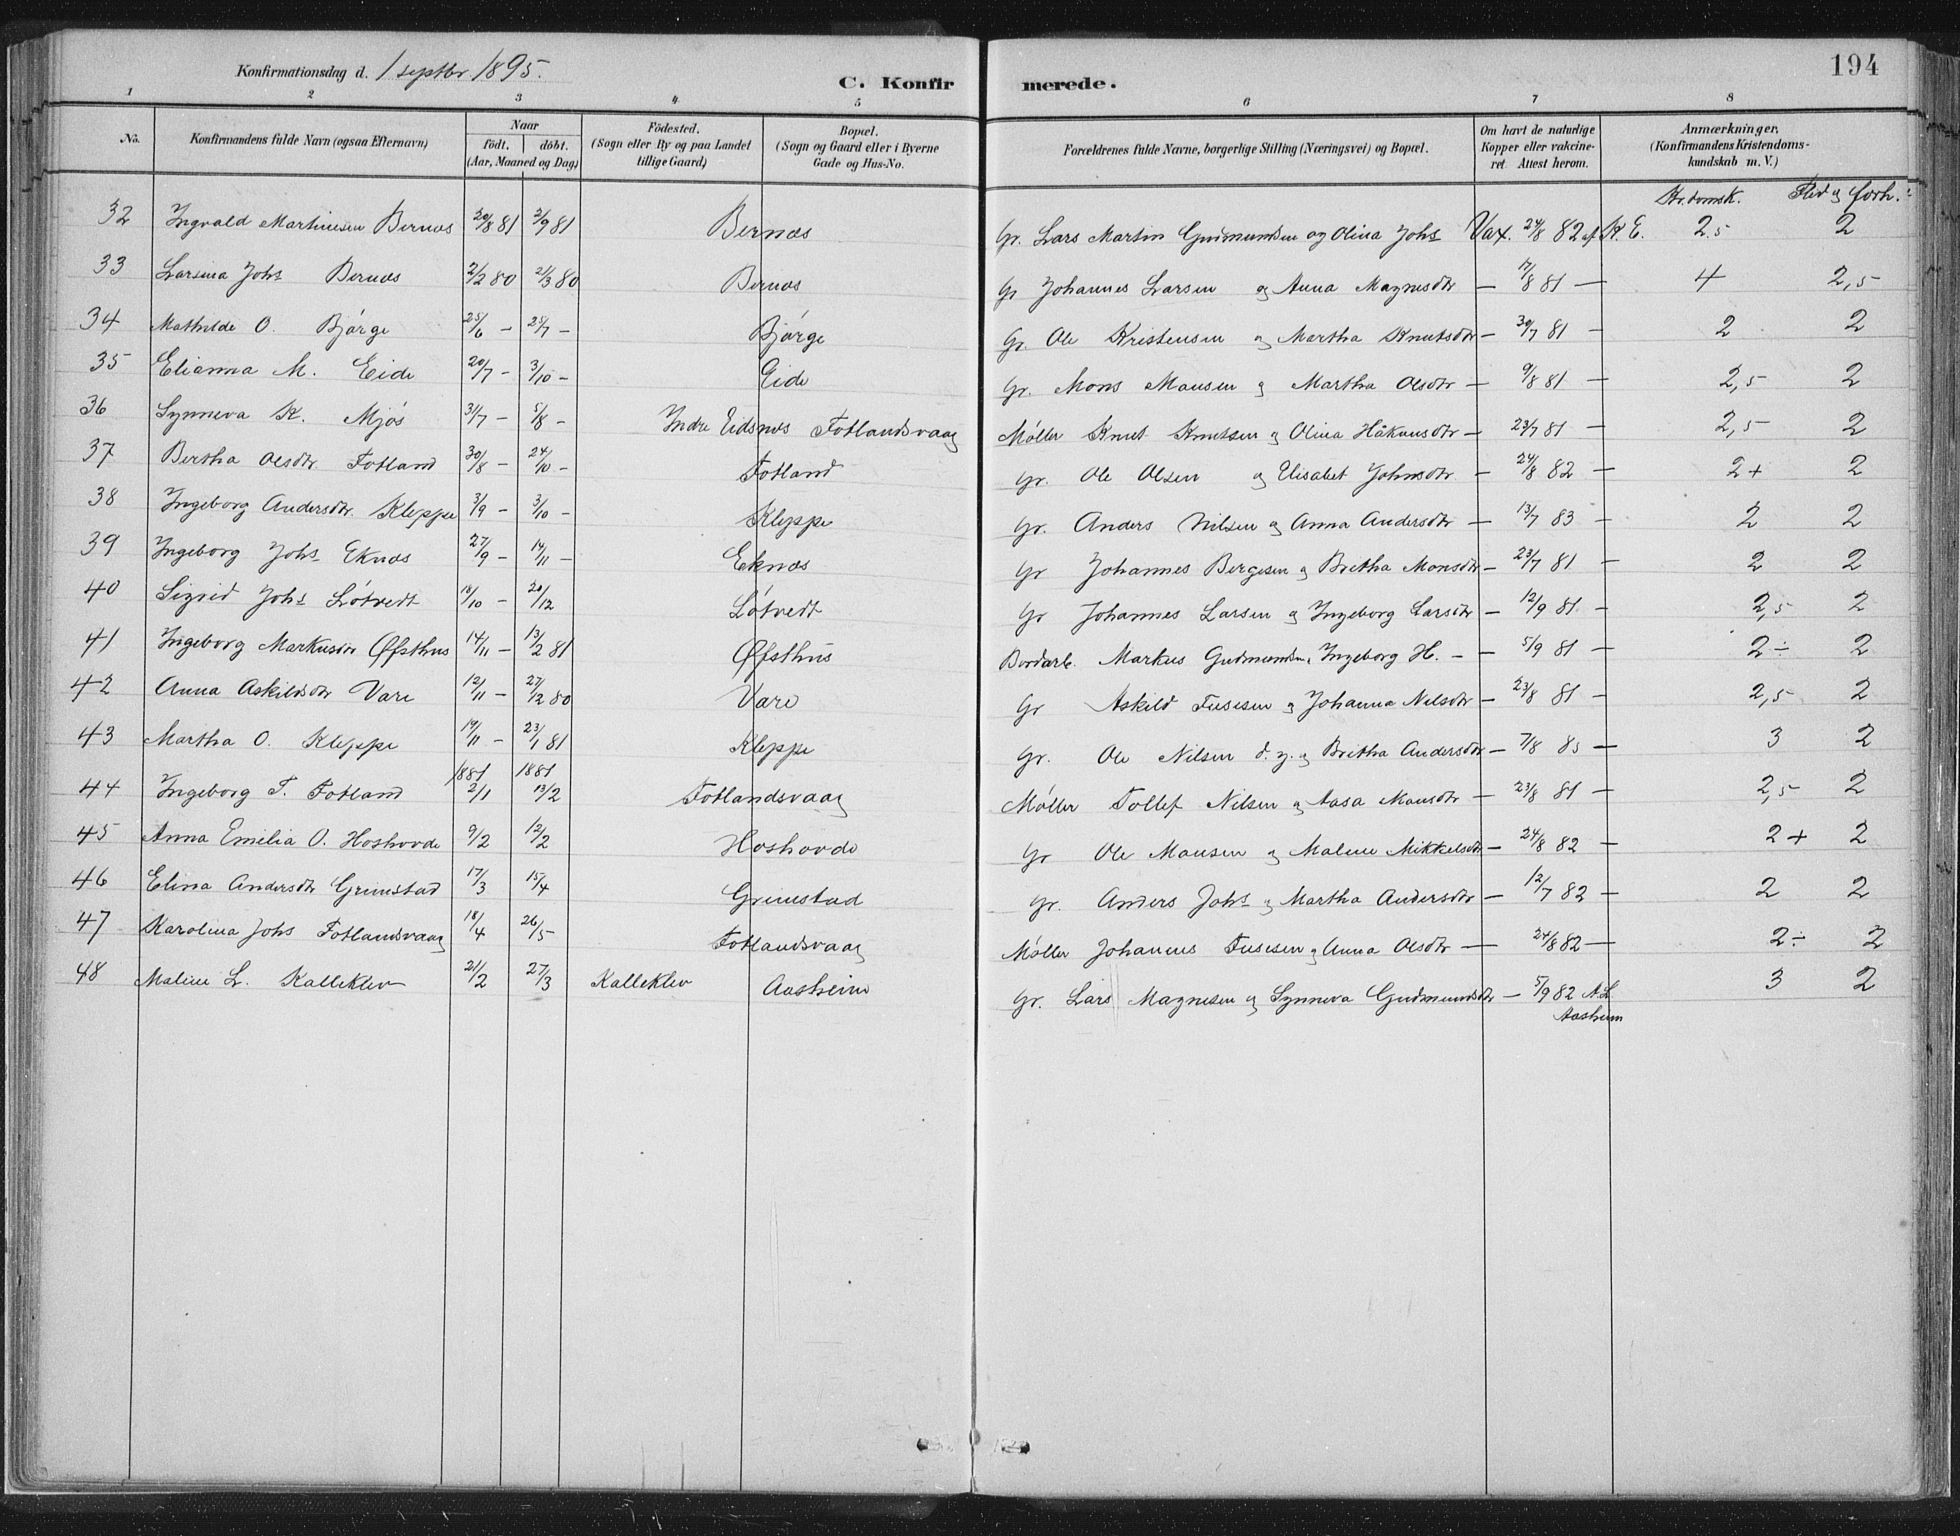 Konfirmationsdag d. 1 septbr 1895.
C. Konfirmerede.
194
1 2 3 4 5 6 7 8
No.
Konfirmandens fulde Navn (ogsaa Efternavn)
Naar
födt. döbt.
(Aar, Maaned og Dag)
Födested.
(Sogn eller By og paa Landet
tillige Gaard)
Bopæl.
(Sogn og Gaard eller i Byerne
Gade og Hus-No.
Forældrenes fulde Navne, borgerlige Stilling (Næringsvei) og Bopæl.
Om havt de naturlige
Kopper eller vakcine-
ret Attest herom.
Anmærkninger.
(Konfirmandens Kristendoms-
kundskab m. V.)
Kr.domsk. Flid og forh.:
32 Ingvald Martinesen Bernes 20/8 81 2/9 81 Bernæs Gr. Lars Martin Gudmundsen og Olina Johs Vax. 24/8 82 af K. E. 2.5 2
33 Larsina Johs Bernæs 2/2 80 21/3 80 Bernæs Gr Johannes Larsen og Anna Magnesdtr — 17/8 81 — 4 2,5
34 Mathilde O. Bjørge 25/6 — 25/7 — Bjørge Gr. Ole Kristensen og Martha Knutsdtr — 30/7 81 — 2 2
35 Elianna M. Eide 20/7 — 3/10 — Eide Gr. Mons Monsen og Martha Olsdtr — 9/8 81 — 2,5 2
36 Synneva K. Mjøs 31/7 — 5/8 — Indre Eidsnes Fotlandsvaag Møller Knut Knutsen og Olina Håkonsdtr — 23/7 81 — 2,5 2
37 Bertha Olsdtr. Fotland 30/8 — 24/10 — Fotland Gr. Ole Olsen og Elisabet Johnsdtr — 24/8 82 — 2+ 2
38 Ingeborg Andersdtr. Kleppe 3/9 — 3/10 — Kleppe Gr. Anders Nilsen og Anna Andersdtr — 13/7 83 — 2 2
39 Ingeborg Johs Eknæs 27/9 — 14/11 — Eknæs Gr Johannes Bergesen og Bretha Monsdtr — 23/7 81 — 2 2
40 Sigrid Johs Løtvedt 18/10 — 20/12 Løtvedt Gr Johannes Larsen og Ingeborg Larsdtr — 12/9 81 — 2,5 2
41 Ingeborg Markusdtr Øfsthus 14/11 — 13/2 81 Øfsthus Bordarb. Markus Gudmunds. Ingeborg H. — — 5/9 81 — 2÷ 2
42 Anna Askildsdtr Vare 12/11 — 27/12 80 Vare Gr Askild Fusesen og Johanna Nilsdtr — 23/8 81 — 2,5 2
43 Martha O. Kleppe 19/11 — 23/1 81 Kleppe Gr. Ole Nilsen d. y. og Bretha Andersdtr — 7/8 83 — 3 2
1881 1881
44 Ingeborg T. Fotland 2/1 13/2 Fotlandsvaag Møller Tollef Nilsen og Aasa Monsdtr — 23/8 81 — 2,5 2
45 Anna Emilia O. Hoshovde 9/2 12/2 Hoshovde Gr Ole Monsen og Malene Mikkelsdtr — 24/8 82 — 2+ 2
46 Elina Andersdtr Grimstad 17/3 15/4 Grimstad Gr. Anders Johs og Martha Andersdtr — 12/7 82 — 2 2
47 Karolina Johs Fotlandsvaag 18/4 26/5 Fotlandsvaag Møller Johannes Fusesen og Anna Olsdtr — 24/8 82 — 2÷ 2
48 Maline L. Kalleklev 21/2 27/3 Kalleklev Aasheim Gr. Lars Magnesen og Synneva Gudmundsdtr — 5/9 82 A. L 3 2
Aasheim